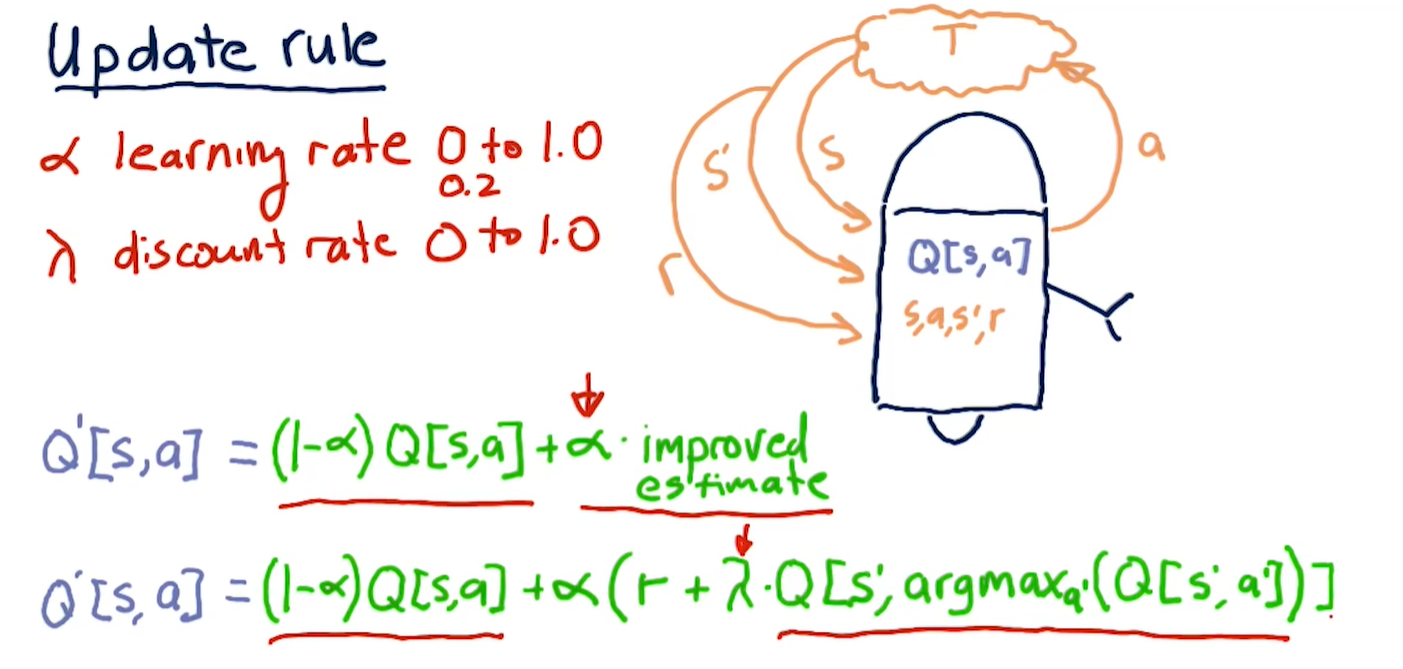 Update rule
α learning rate 0 to 1.0
0.2
λ discount rate 0 to 1.0
T
s'
s
a
r
Q[s,a]
s,a,s',r
Q'[s,a] = (1-α) Q[s,a] + α · improved
estimate
Q'[s,a] = (1-α)Q[s,a] + α(r + λ·Q[s', argmaxₐ'(Q[s', a'])]